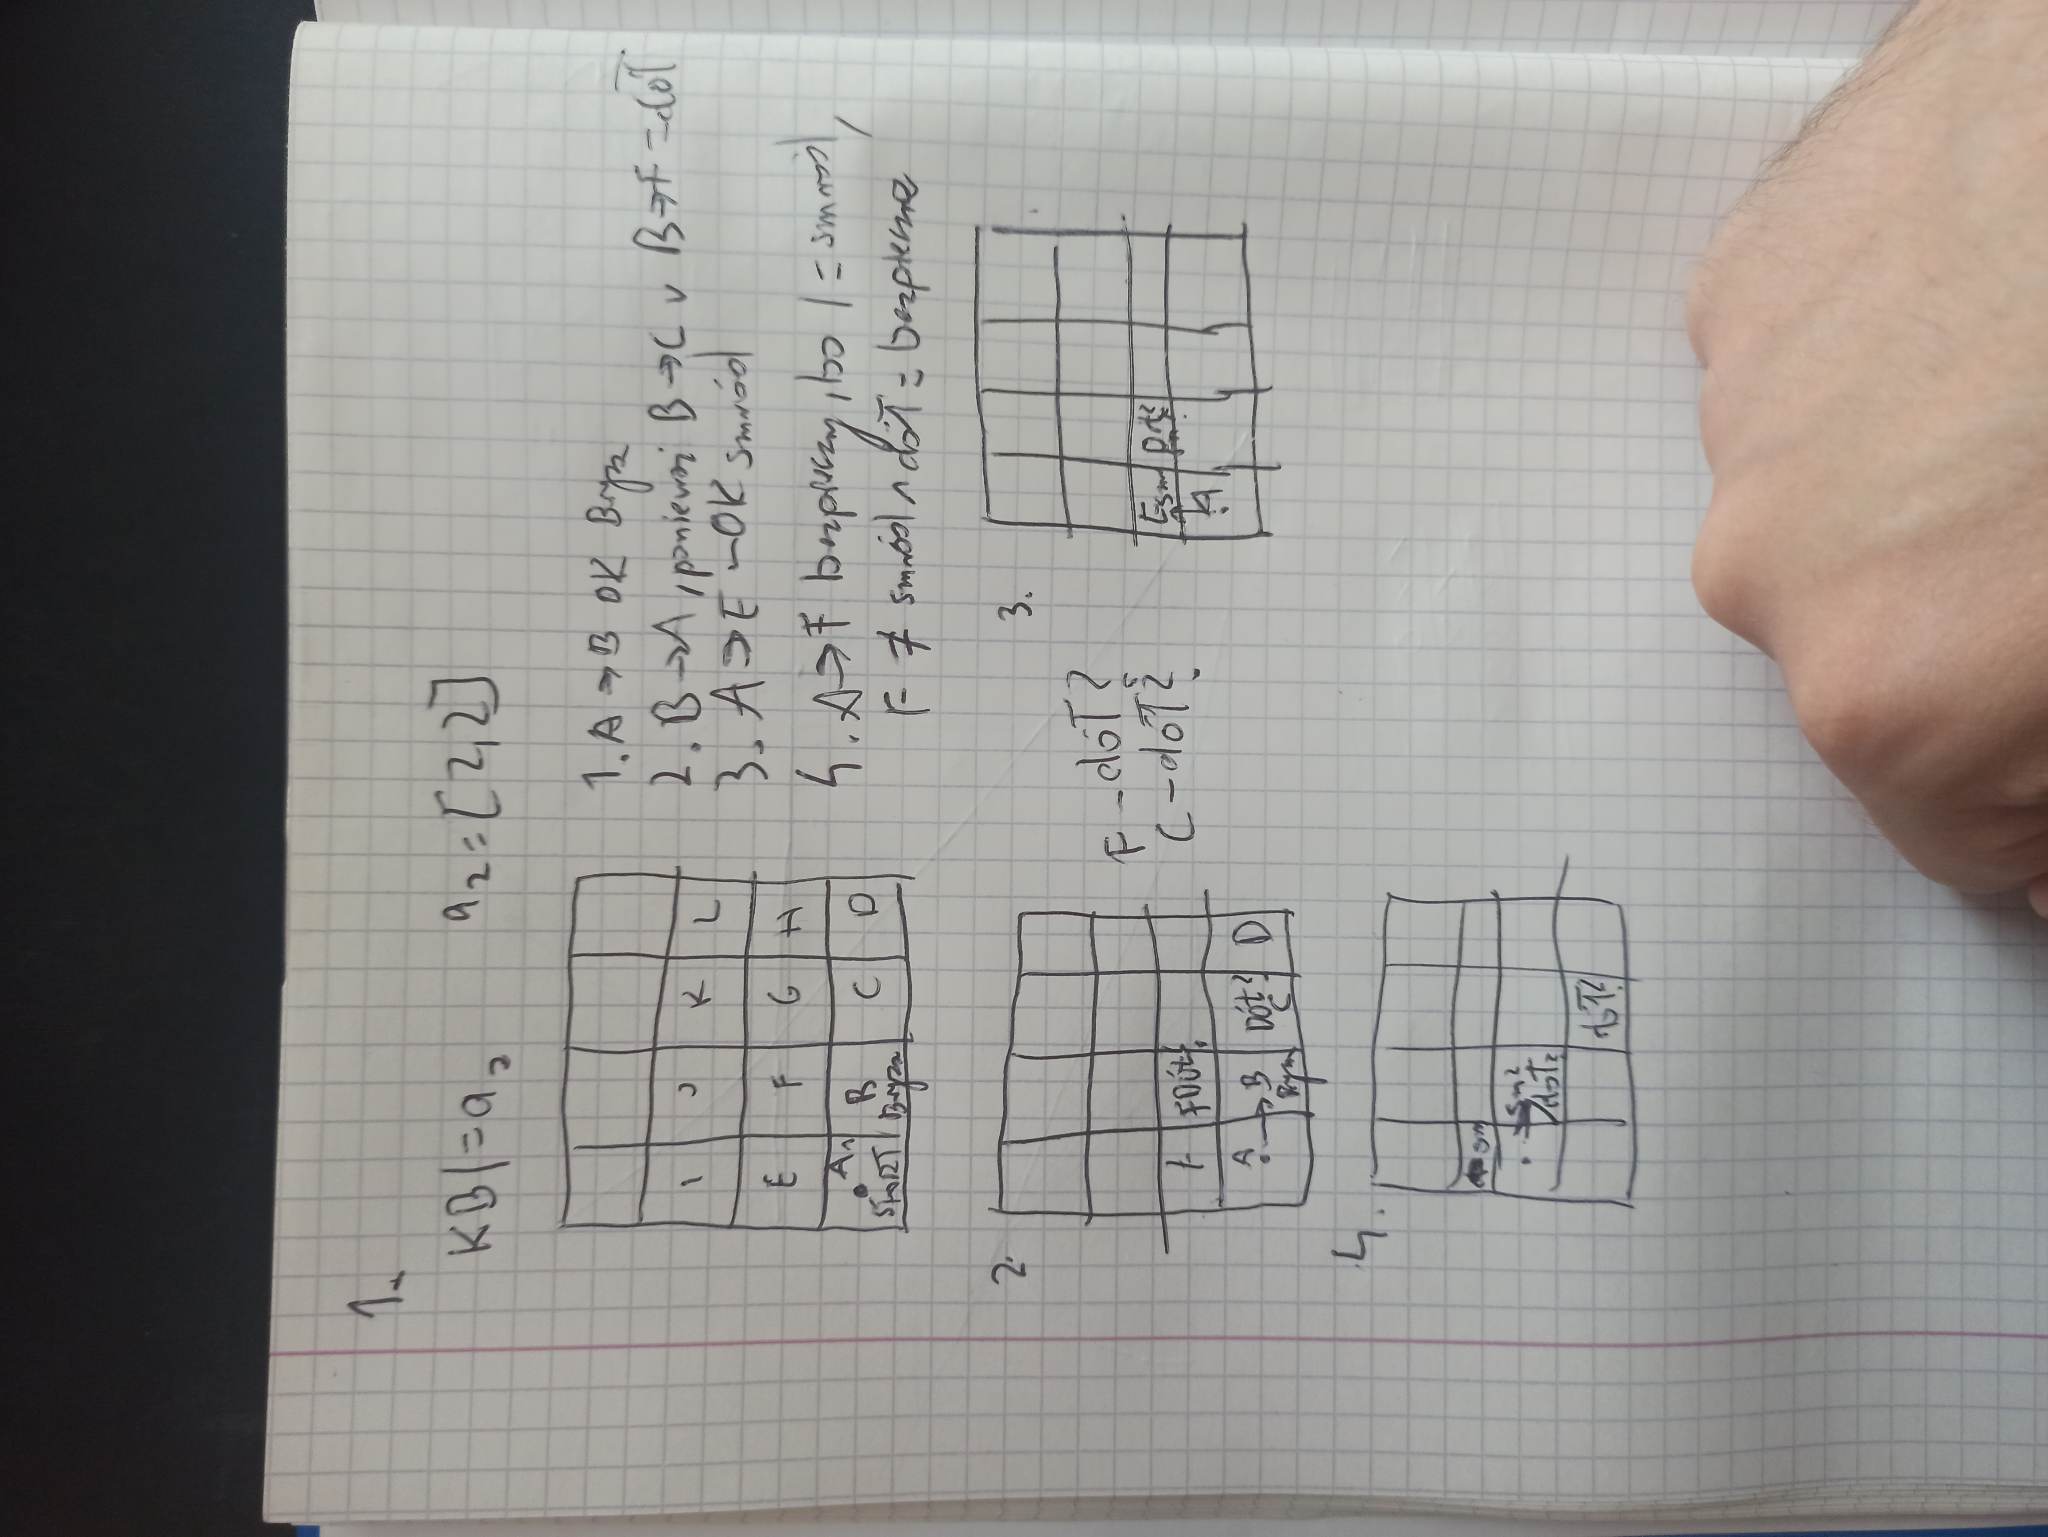 1.
KB |= a₂ a₂ = [2,2]
I J K L
E F G H
A B C D
START Bryza
1. A → B OK Bryza
2. B → A, ponieważ B → C v B → F = dół
3. A → E - OK smród
4. A → F bezpieczny, bo I = smród,
F ≠ smród ∧ dół = bezpieczne
2.
F Dół?
A → B Dół? D
Bryza C
F - dół?
C - dół?
3.
E sm Dół?
A
4.
sm
sm?
dół?
dół?